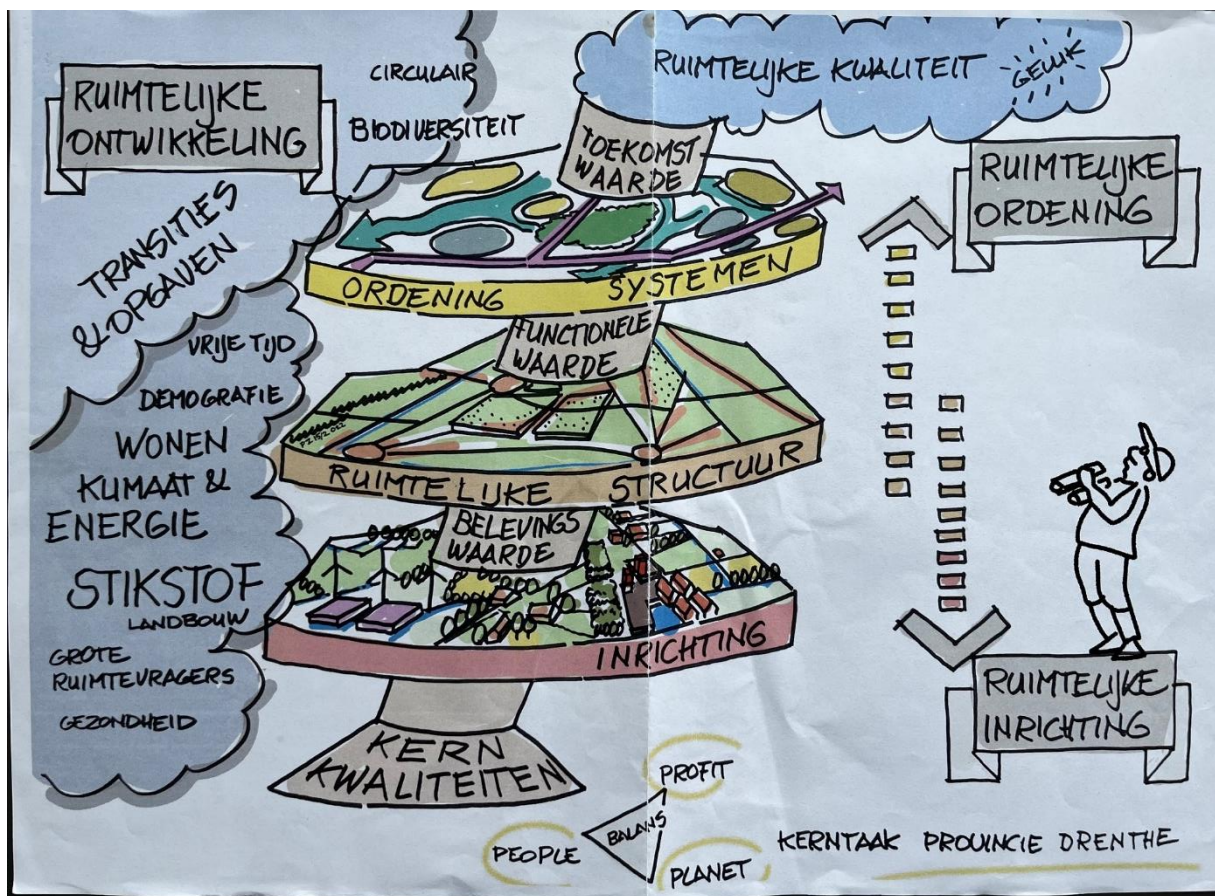 RUIMTELIJKE
ONTWIKKELING
CIRCULAIR
BIODIVERSITEIT
TRANSITIES
& OPGAVEN
VRIJE TIJD
DEMOGRAFIE
WONEN
KLIMAAT &
ENERGIE
STIKSTOF
LANDBOUW
GROTE
RUIMTEVRAGERS
GEZONDHEID
RUIMTELIJKE KWALITEIT
GELUK
TOEKOMST
WAARDE
ORDENING SYSTEMEN
FUNCTIONELE
WAARDE
RUIMTELIJKE STRUCTUUR
BELEVINGS
WAARDE
INRICHTING
KERN
KWALITEITEN
RUIMTELIJKE
ORDENING
RUIMTELIJKE
INRICHTING
PROFIT
BALANS
PEOPLE
PLANET
KERNTAAK PROVINCIE DRENTHE